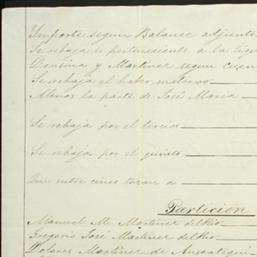 Importe segun Balance adjunto
Se rebaja lo perteneciente á la
Orentina y Martinez segun
Se rebaja el haber materno
Menos la parte de José Maria
Se rebaja por el tercio
Se rebaja por el quinto
Que entre cinco tocan a
Particion
Manuel M. Martinez del Rio
Gregorio José Martinez del Rio
Dolores Martinez de Ansoategui